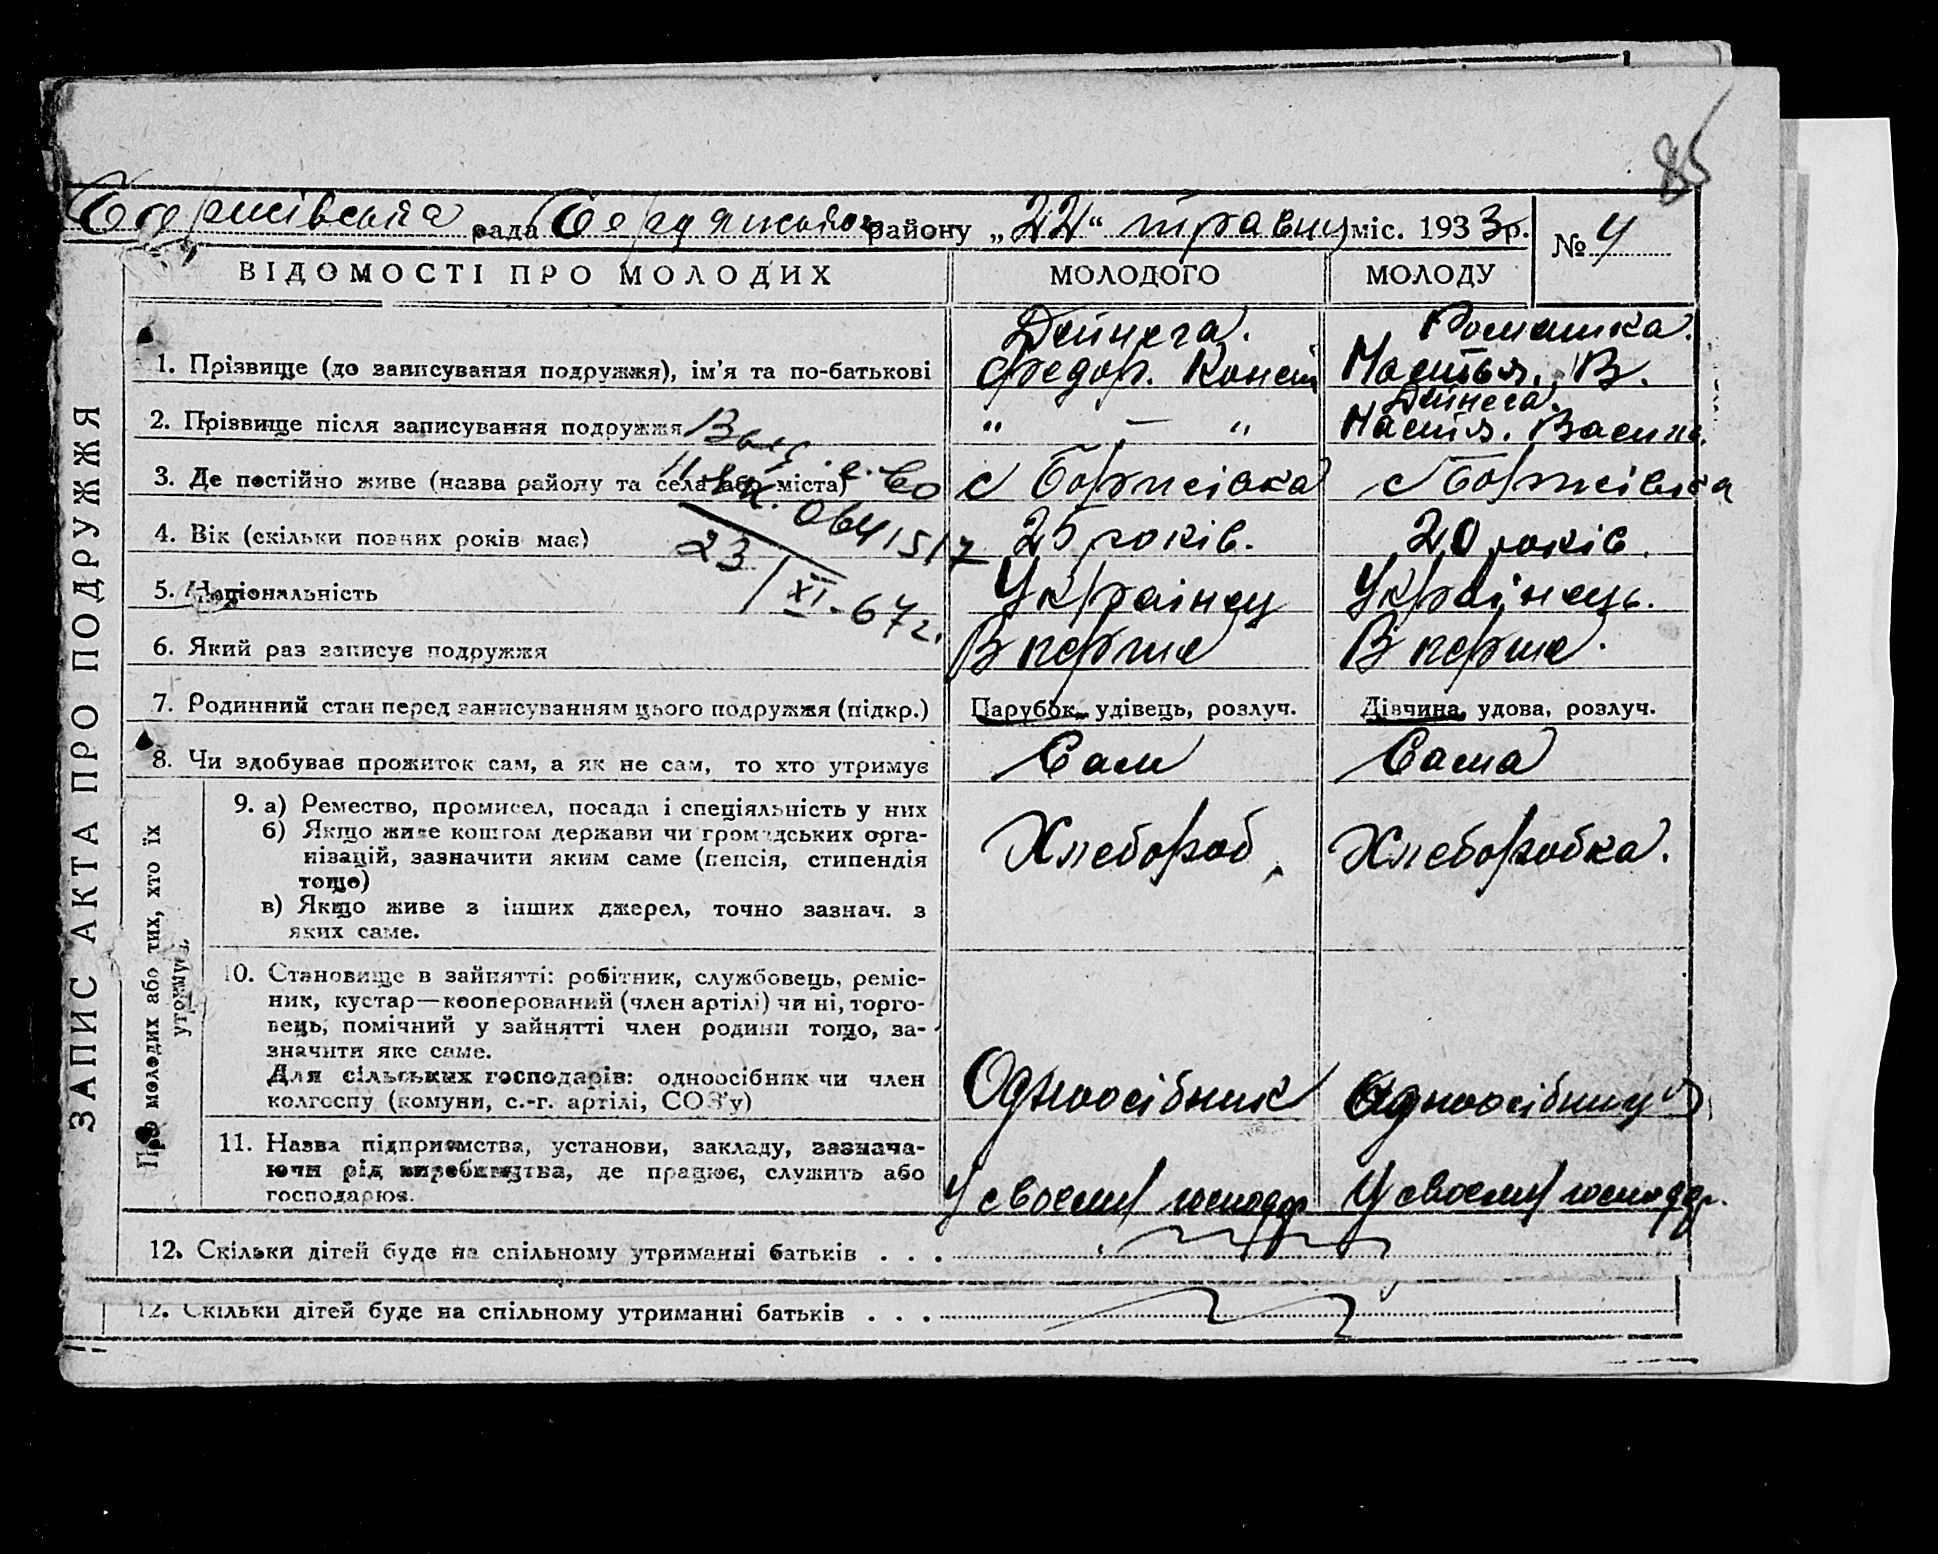 85
Борисівська рада Бердянського району „22“ травня міс. 1933 р. № 4
ВІДОМОСТІ ПРО МОЛОДИХ МОЛОДОГО МОЛОДУ
ЗАПИС АКТА ПРО ПОДРУЖЖЯ
Дейнега. Ромашка.
1. Прізвище (до записування подружжя), ім'я та по-батькові Федор. Конст Настья. В.
Дейнега.
2. Прізвище після записування подружжя „ — „ Настя. Васил.
Выд. с-во
3. Де постійно живе (назва району та села або міста) с Борисівка с Борисівка
0641517
4. Вік (скільки повних років має) 25 років. 20 років.
23/XI-67г.
5. Національність Українец Українець.
6. Який раз записує подружжя Вперше Вперше.
7. Родинний стан перед записуванням цього подружжя (підкр.) Парубок, удівець, розлуч. Дівчина, удова, розлуч.
8. Чи здобуває прожиток сам, а як не сам, то хто утримує Сам Сама
Про молодих або тих, хто їх утримує
9. а) Ремество, промисел, посада і спеціяльність у них
б) Якщо живе коштом держави чи громадських орга-
нізацій, зазначити яким саме (пенсія, стипендія Хлебороб, Хлеборобка.
тощо)
в) Якщо живе з інших джерел, точно зазнач. з
яких саме.
10. Становище в зайнятті: робітник, службовець, реміс-
ник, кустар—кооперований (член артілі) чи ні, торго-
вець, помічний у зайнятті член родини тощо, за-
значити яке саме.
Для сільських господарів: одноосібник чи член
колгоспу (комуни, с.-г. артілі, СОЗ'у) Одноосібник Одноосібниця
11. Назва підприємства, установи, закладу, зазнача-
ючи рід виробництва, де працює, служить або
господарює. У своему господар У своему господар.
12. Скільки дітей буде на спільному утриманні батьків . . .
12. Скільки дітей буде на спільному утриманні батьків . . .